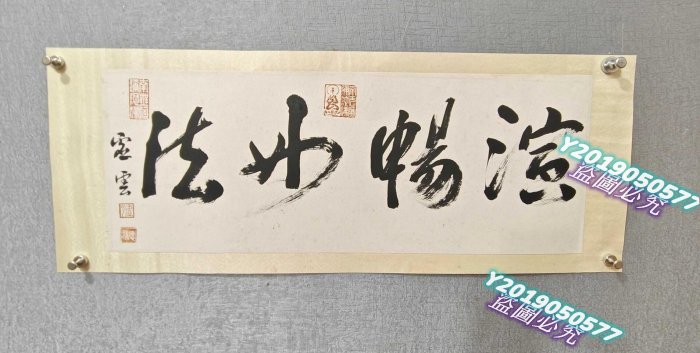 演暢妙法
虛雲
Y2019050577
盜圖必究
Y2019050577
盜圖必究